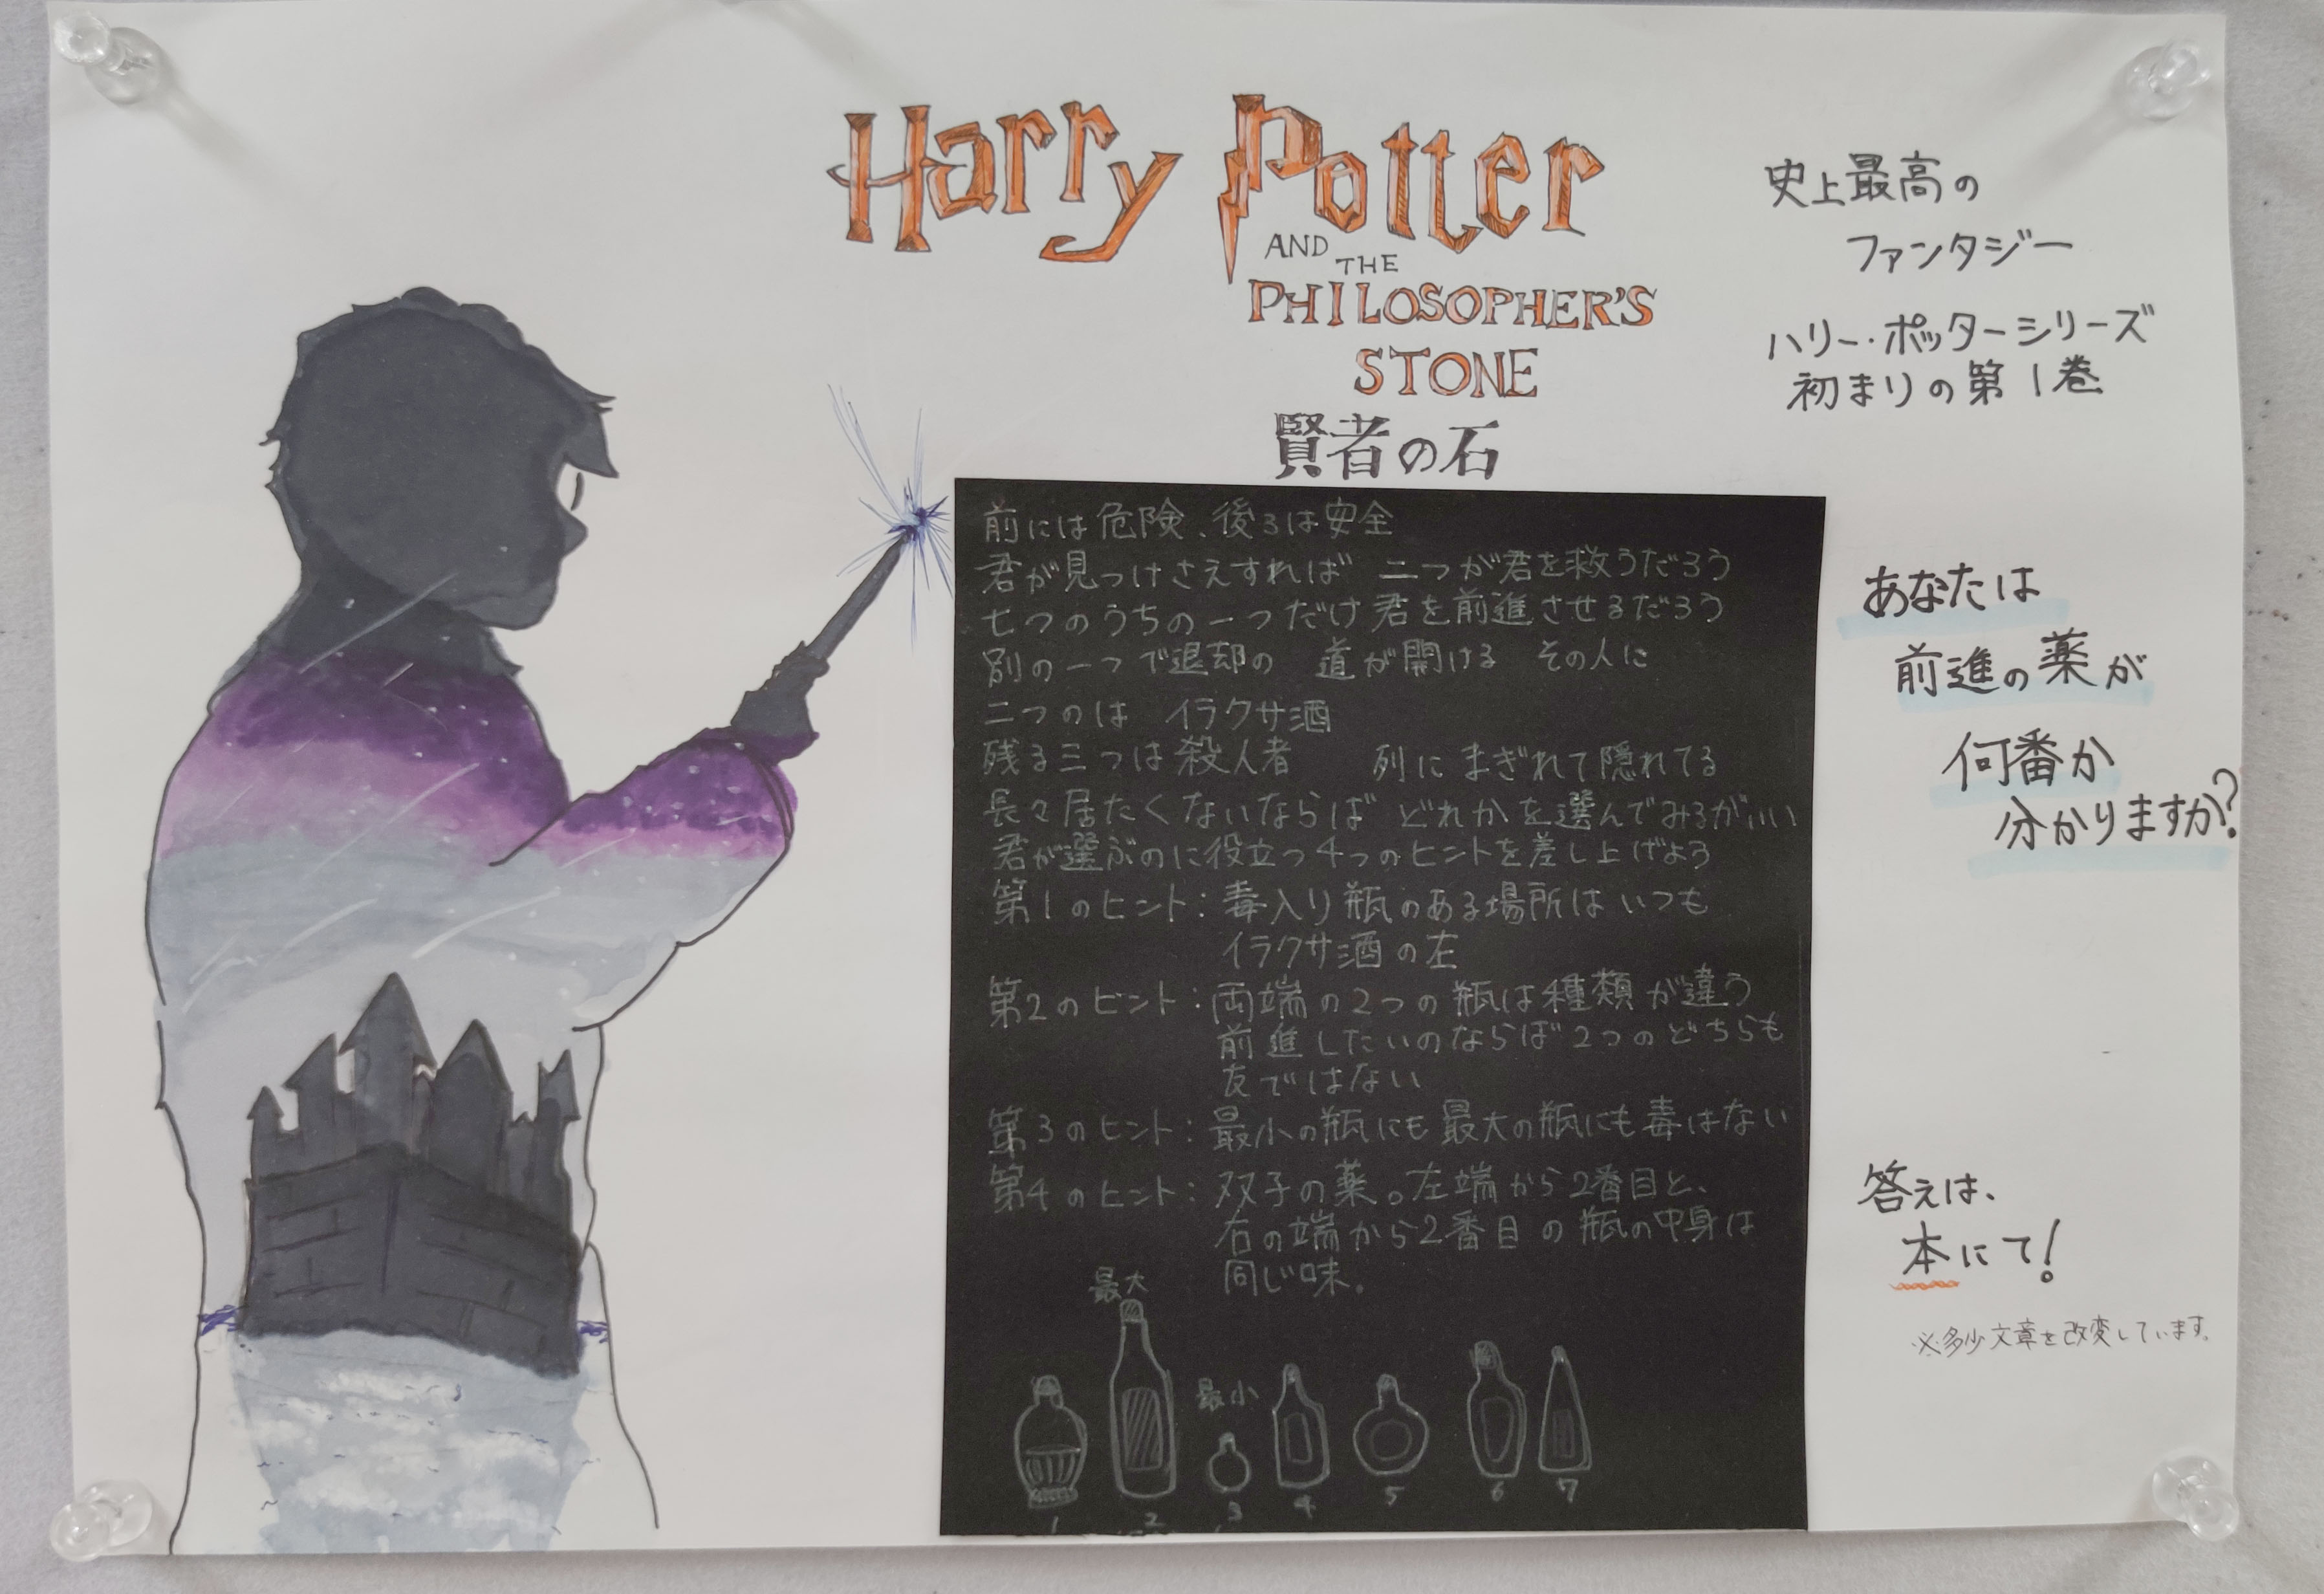 Harry Potter
AND
THE
PHILOSOPHER'S
STONE
賢者の石
史上最高の
ファンタジー
ハリー・ポッターシリーズ
初まりの第1巻
前には危険、後ろは安全
君が見つけさえすれば 二つが君を救うだろう
七つのうちの一つだけ君を前進させるだろう
別の一つで退却の 道が開ける その人に
二つのは イラクサ酒
残る三つは殺人者 列にまぎれて隠れてる
長々居たくないならば どれかを選んでみるがいい
君が選ぶのに役立つ4つのヒントを差し上げよう
第1のヒント:毒入り瓶のある場所はいつも
イラクサ酒の左
第2のヒント:両端の2つの瓶は種類が違う
前進したいのならば2つのどちらも
友ではない
第3のヒント:最小の瓶にも最大の瓶にも毒はない
第4のヒント:双子の薬。左端から2番目と、
右の端から2番目の瓶の中身は
同じ味。
最大
最小
1 2 3 4 5 6 7
あなたは
前進の薬が
何番か
分かりますか?
答えは、
本にて!
※多少文章を改変しています。